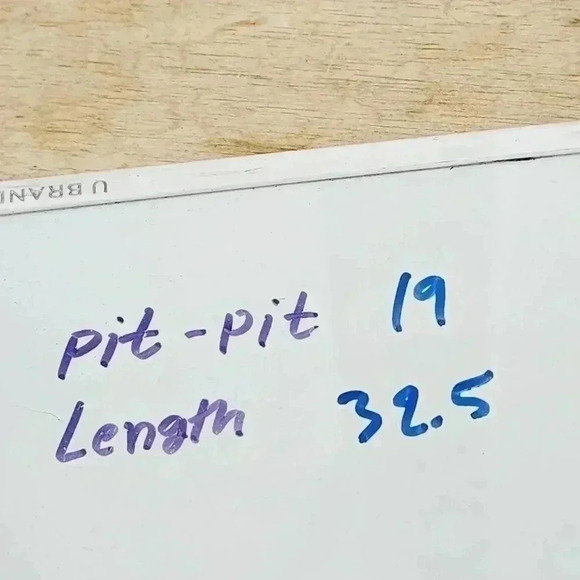 U BRAN
pit-pit 19
Length 32.5